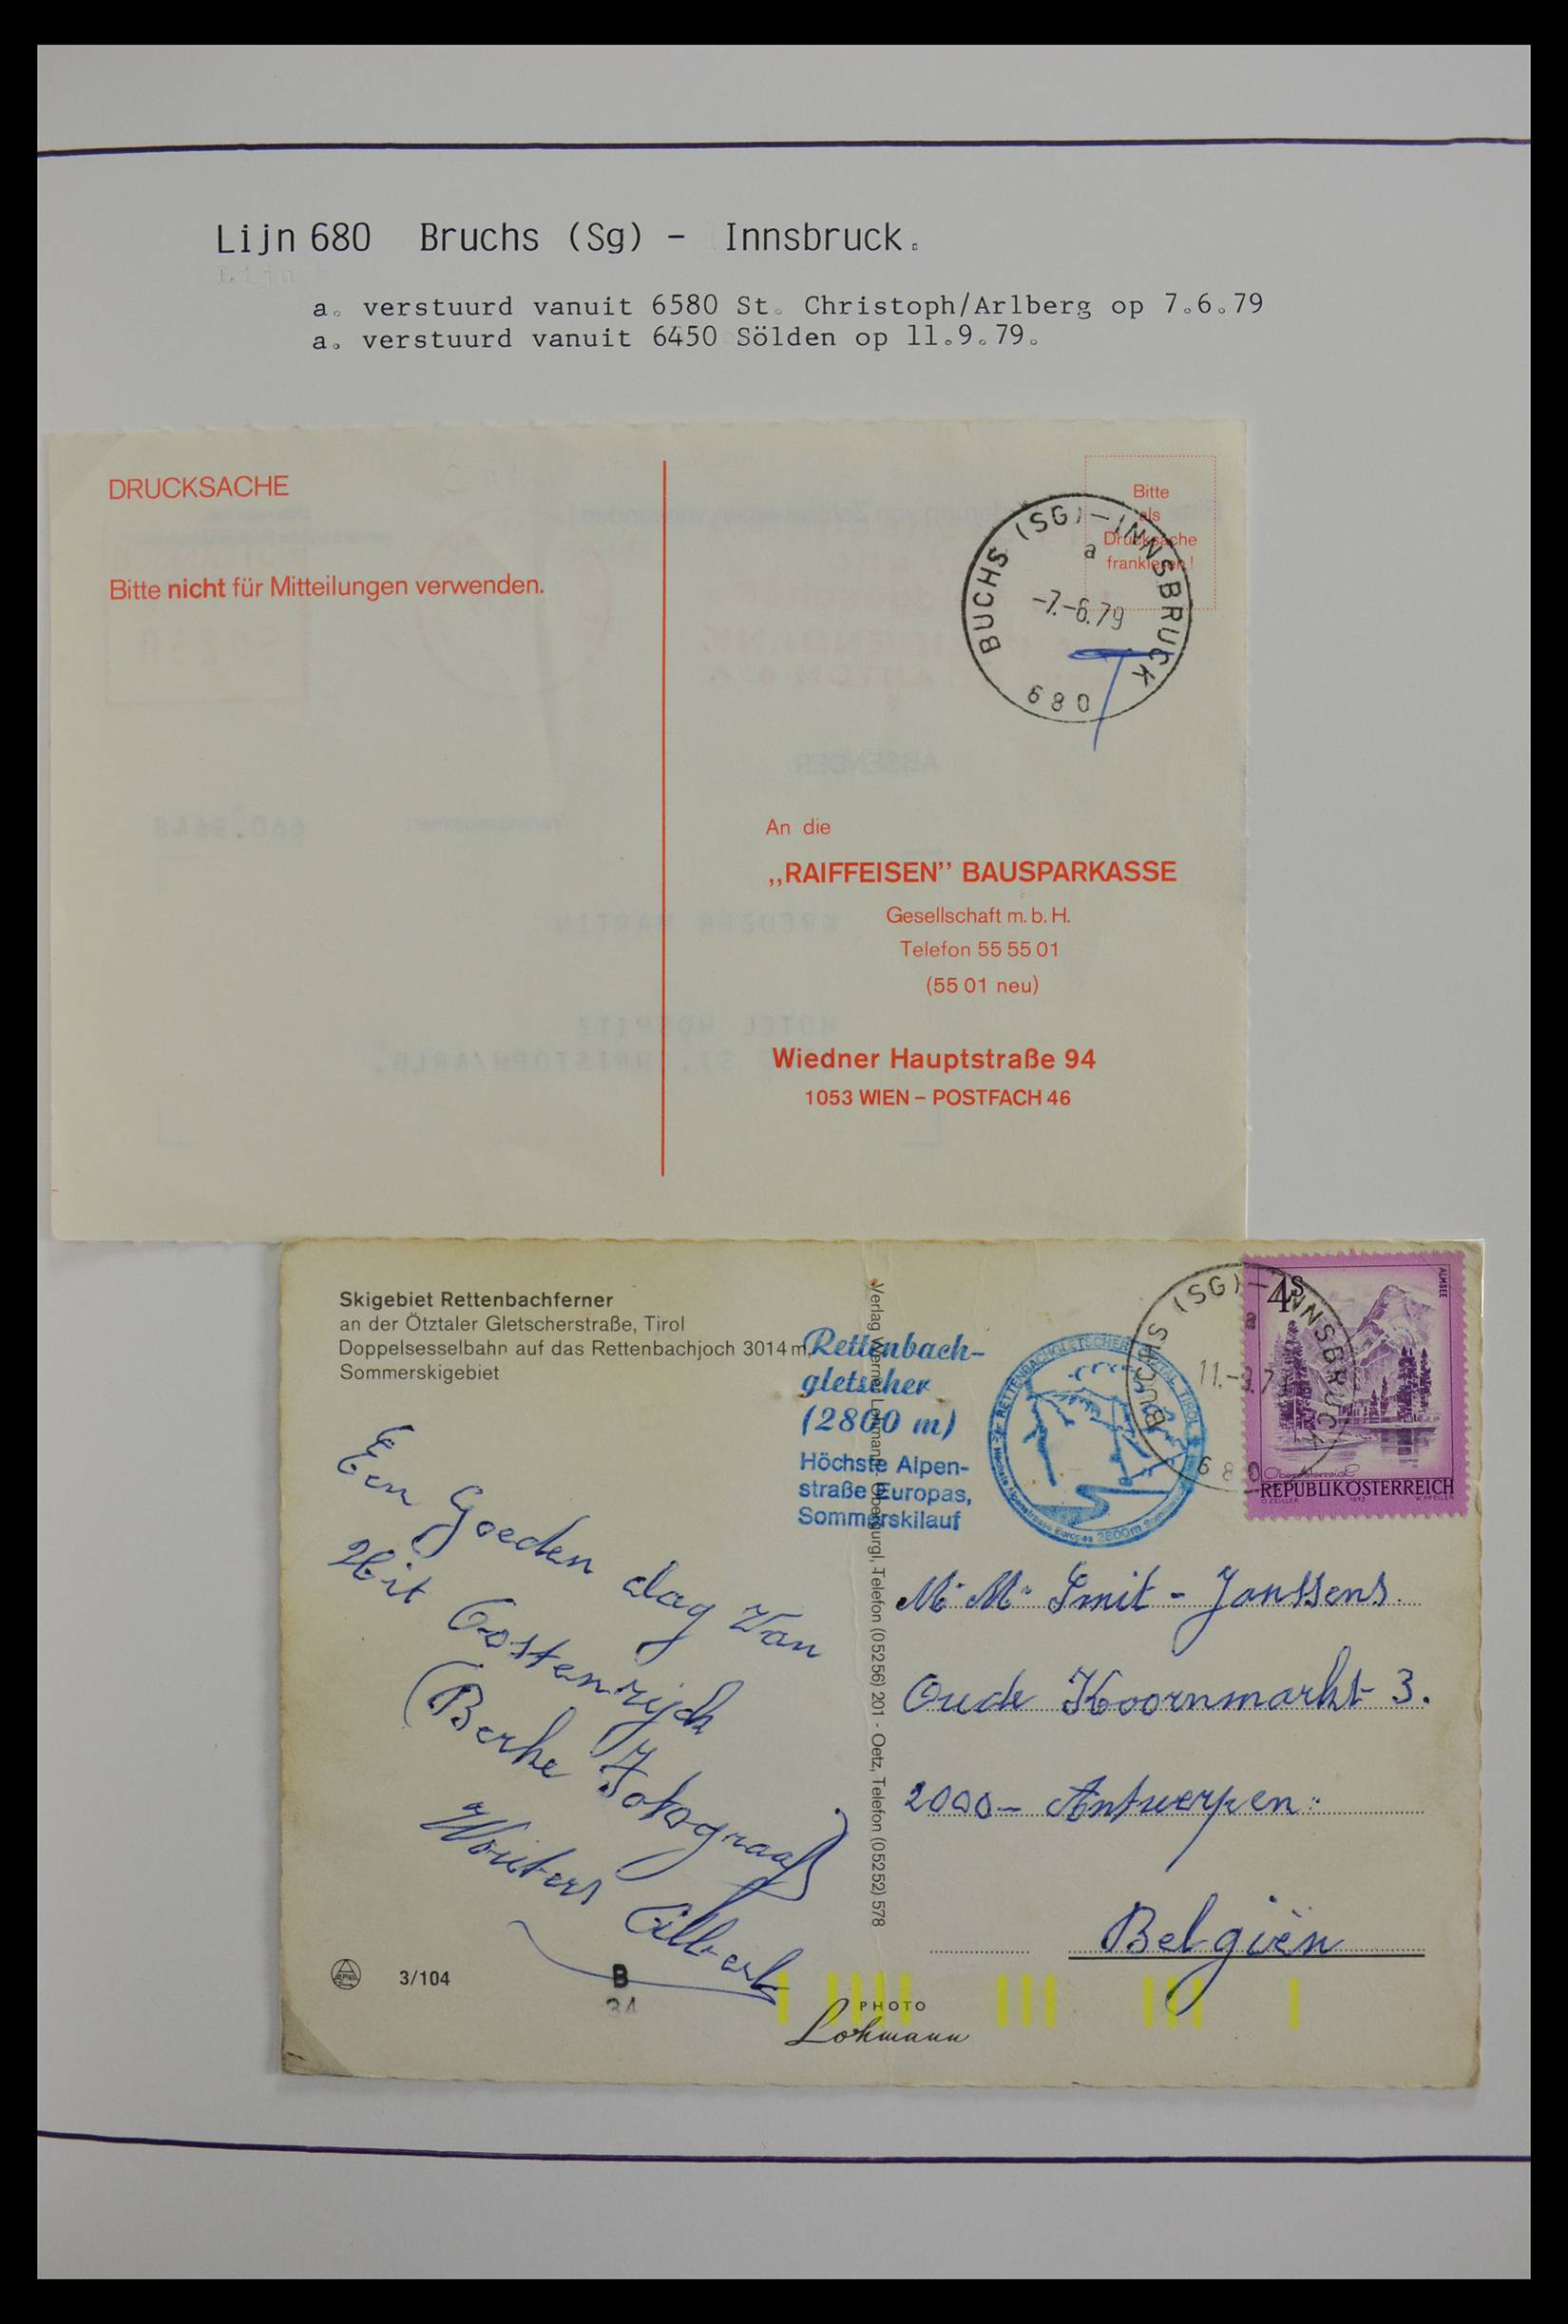 Lijn 680 Bruchs (Sg) - Innsbruck.
Lijn
a. verstuurd vanuit 6580 St. Christoph/Arlberg op 7.6.79
a. verstuurd vanuit 6450 Sölden op 11.9.79.
DRUCKSACHE
Bitte nicht für Mitteilungen verwenden.
Bitte
als
Drucksache
frankieren!
BUCHS (SG) - INNSBRUCK
a
-7.-6.79
680
An die
„RAIFFEISEN” BAUSPARKASSE
Gesellschaft m. b. H.
Telefon 55 55 01
(55 01 neu)
Wiedner Hauptstraße 94
1053 WIEN – POSTFACH 46
ABSENDER
660.9648
KREUZER MARTIN
HOTEL HOSPITZ
ST. CHRISTOPH/ARLB.
Skigebiet Rettenbachferner
an der Ötztaler Gletscherstraße, Tirol
Doppelsesselbahn auf das Rettenbachjoch 3014 m,
Sommerskigebiet
Rettenbach-
gletscher
(2800 m)
Höchste Alpen-
straße Europas,
Sommerskilauf
RETTENBACHGLETSCHER ÖTZTAL TIROL
Höchste Alpenstrasse Europas 2800m
BUCHS (SG) - INNSBRUCK
a
11.-9.7
680
4S
ALMSEE
Oberösterreich
REPUBLIK ÖSTERREICH
O. ZEILLER 1973 W. PFEILER
Verlag Werner Lohmann, Obergurgl, Telefon (05256) 201 - Oetz, Telefon (05252) 578
Een Goeden dag Van
Uit Oostenrijck
(Berke Fotograaf)
Wouters Albert
M. M. Smit - Janssens.
Oude Koornmarkt 3.
2000 - Antwerpen.
Belgiën
3/104
B
34
PHOTO
Lohmann